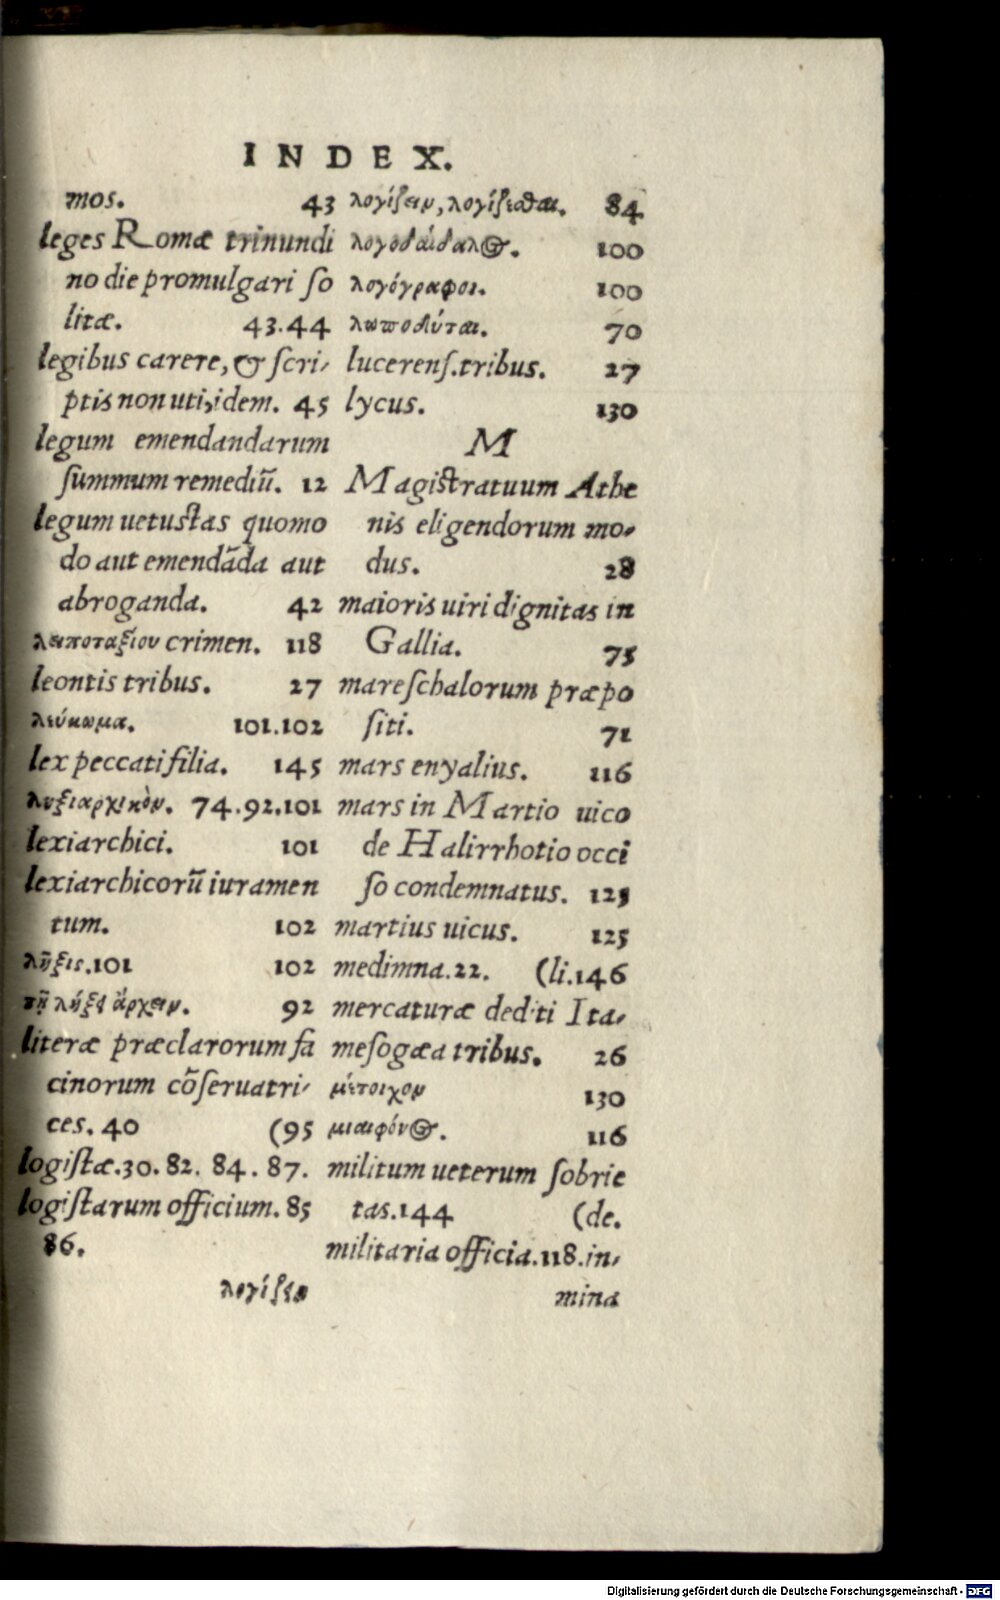 INDEX.
mos. 43
leges Romæ trinundi
no die promulgari so
litæ. 43.44
legibus carere, & scri-
ptis non uti, idem. 45
legum emendandarum
summum remediũ. 12
legum uetustas quomo
do aut emendãda aut
abroganda. 42
λειποταξίου crimen. 118
leontis tribus. 27
λεύκωμα. 101.102
lex peccati filia. 145
ληξιαρχικὸν. 74.92.101
lexiarchici. 101
lexiarchicorũ iuramen
tum. 102
λῆξις.101 102
τῇ λήξῃ ἄρχειν. 92
literæ præclarorum fa
cinorum cõseruatri-
ces. 40 (95
logistæ.30.82. 84.87.
logistarum officium. 85
86.
λογίζειν
λογίζειν, λογίζεσθαι. 84
λογοδαίδαλος. 100
λογόγραφοι. 100
λωποδύται. 70
lucerens.tribus. 27
lycus. 130
M
Magistratuum Athe
nis eligendorum mo-
dus. 28
maioris uiri dignitas in
Gallia. 75
mareschalorum præpo
siti. 71
mars enyalius. 116
mars in Martio uico
de Halirrhotio occi
so condemnatus. 125
martius uicus. 125
medimna.22. (li.146
mercaturæ dediti Ita-
mesogæa tribus. 26
μέτοικον 130
μιαιφόνος. 116
militum ueterum sobrie
tas.144 (de.
militaria officia.118.in-
mina
Digitalisierung gefördert durch die Deutsche Forschungsgemeinschaft - DFG